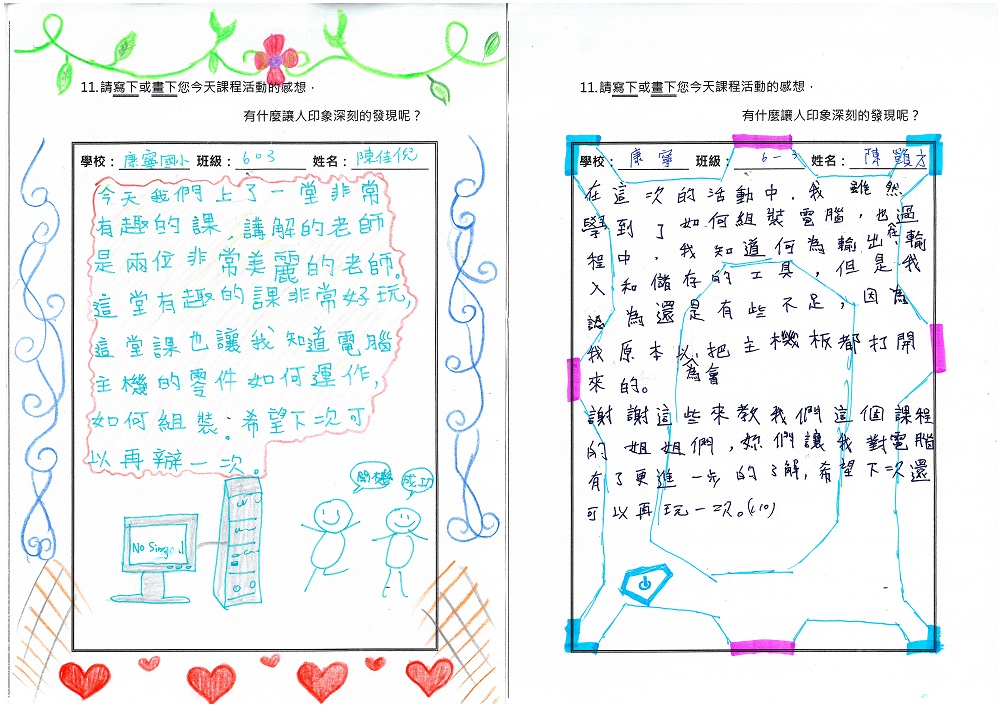 11.請寫下或畫下您今天課程活動的感想，
有什麼讓人印象深刻的發現呢？
學校：康寧國小 班級：603 姓名：陳佳倪
今天我們上了一堂非常
有趣的課，講解的老師
是兩位非常美麗的老師。
這堂有趣的課非常好玩，
這堂課也讓我知道電腦
主機的零件如何運作，
如何組裝。希望下次可
以再辦一次。
開機
成功
No Singal
11.請寫下或畫下您今天課程活動的感想，
有什麼讓人印象深刻的發現呢？
學校：康寧 班級：6-3 姓名：陳顗才
在這次的活動中，我雖然
學到了如何組裝電腦，也在過
程中，我知道何為輸出、輸
入和儲存的工具，但是我
認為還是有些不足，因為
我原本以為會把主機板都打開
來的。
謝謝這些來教我們這個課程
的姐姐們，妳們讓我對電腦
有了更進一步的了解，希望下次還
可以再玩一次。